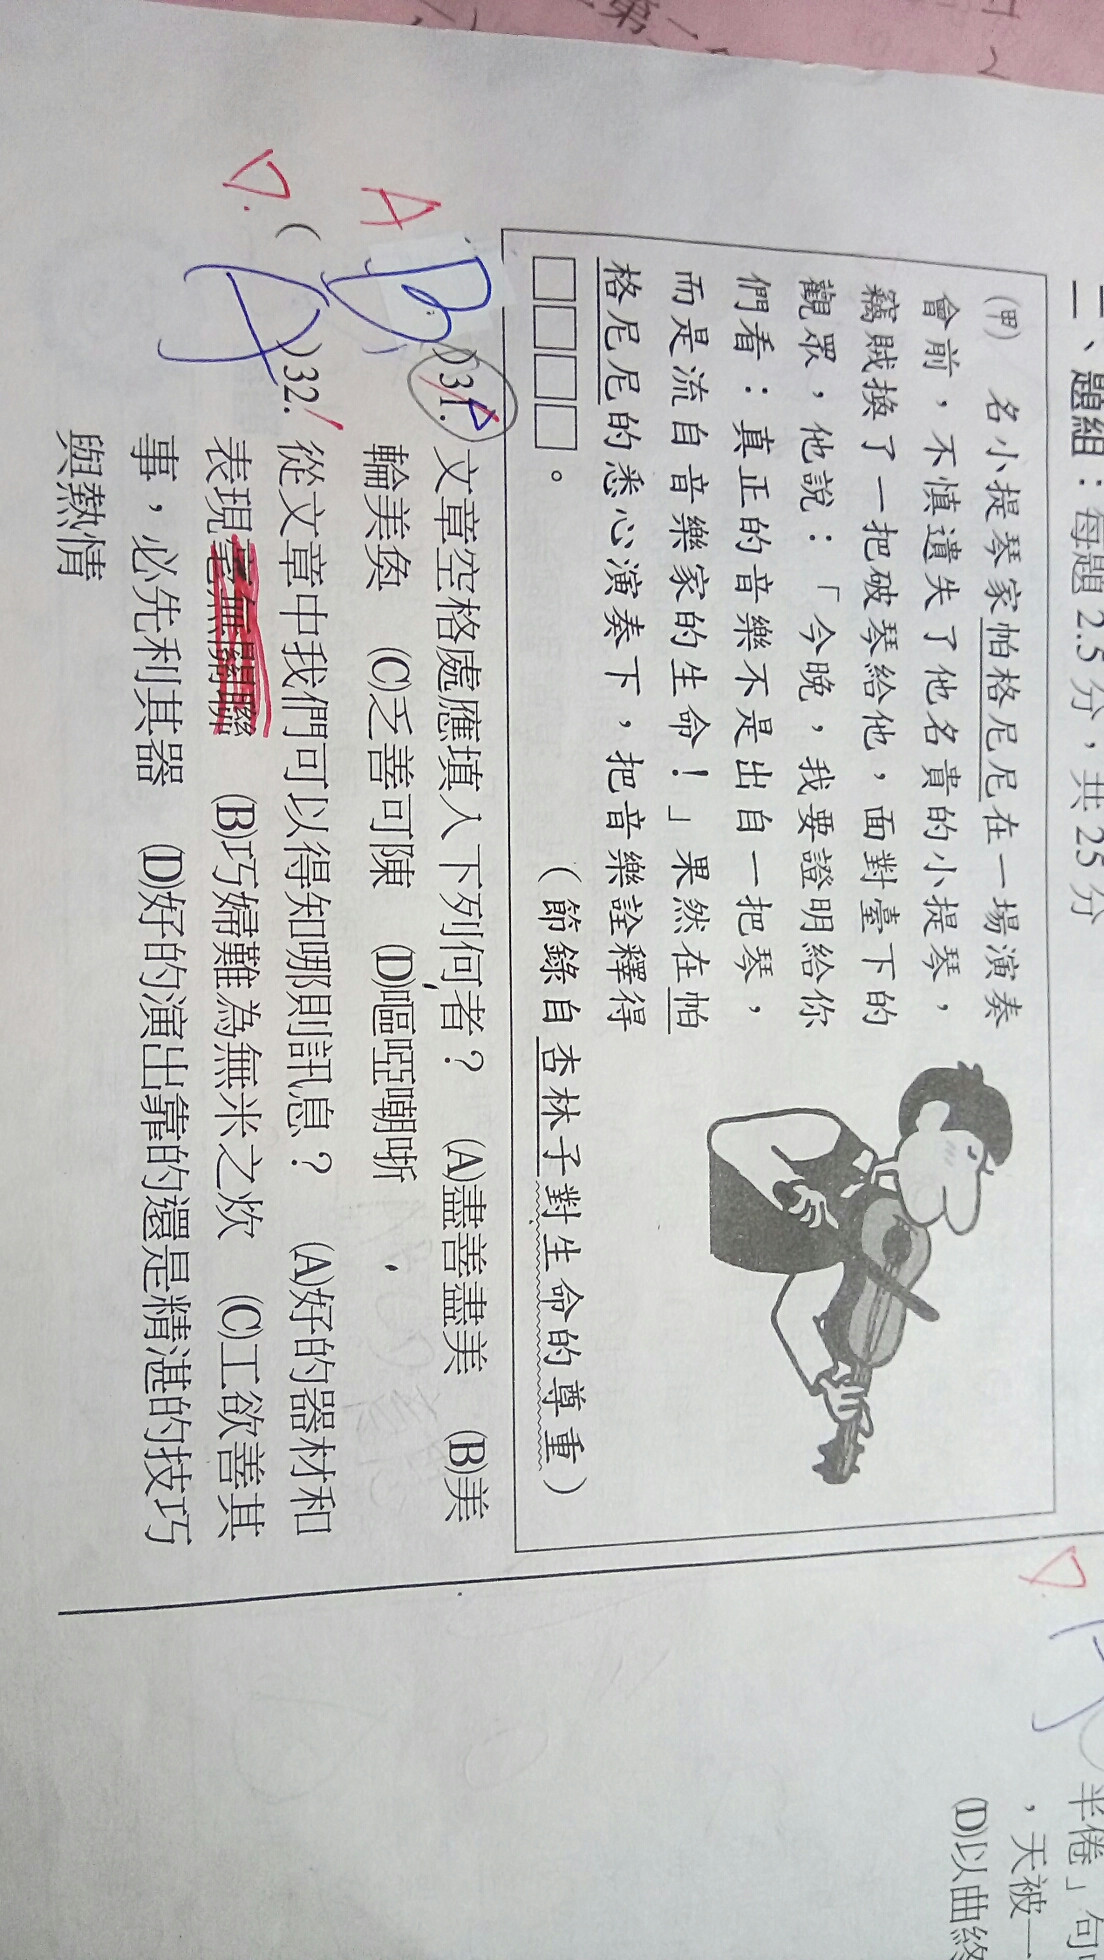 二、題組：每題 2.5 分，共 25 分
(甲) 名小提琴家帕格尼尼在一場演奏
會前，不慎遺失了他名貴的小提琴，
竊賊換了一把破琴給他，面對臺下的
觀眾，他說：「今晚，我要證明給你
們看：真正的音樂不是出自一把琴，
而是流自音樂家的生命！」果然在帕
格尼尼的悉心演奏下，把音樂詮釋得
□□□□。
（節錄自杏林子對生命的尊重）
A
B
)31. 文章空格處應填入下列何者？ (A)盡善盡美 (B)美
輪美奐 (C)乏善可陳 (D)嘔啞嘲哳
D. ( A )32. 從文章中我們可以得知哪則訊息？ (A)好的器材和
表現毫無關聯 (B)巧婦難為無米之炊 (C)工欲善其
事，必先利其器 (D)好的演出靠的還是精湛的技巧
與熱情
半倦」句
，天被一
(D)以曲終